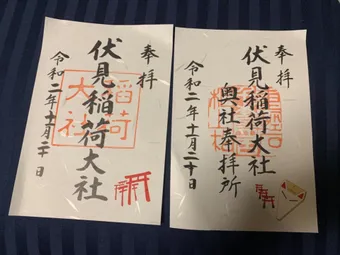 奉拝
伏見稲荷大社
令和二年十一月二十日
稲荷
大社
奉拝
伏見稲荷大社
奥社奉拝所
令和二年十一月二十日